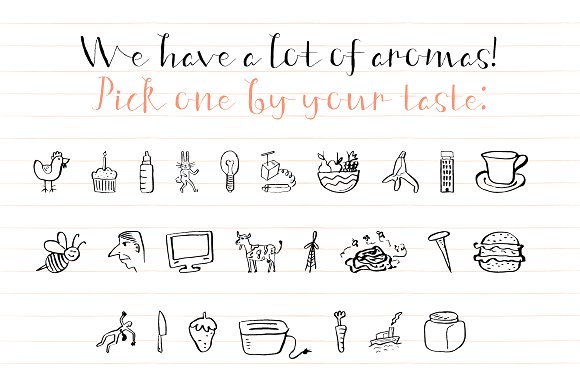 We have a lot of aromas!
Pick one by your taste: